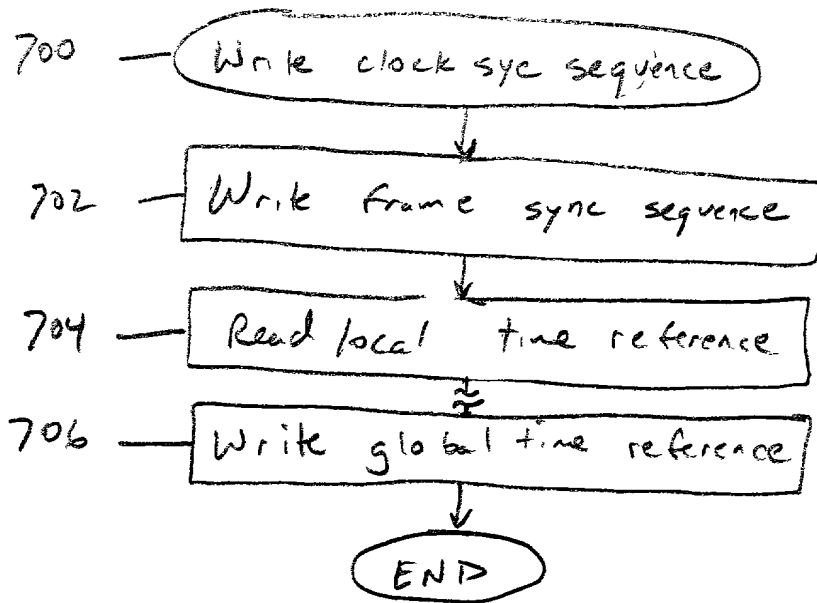 700 Write clock syc sequence
702 Write frame sync sequence
704 Read local time reference
706 Write global time reference
END